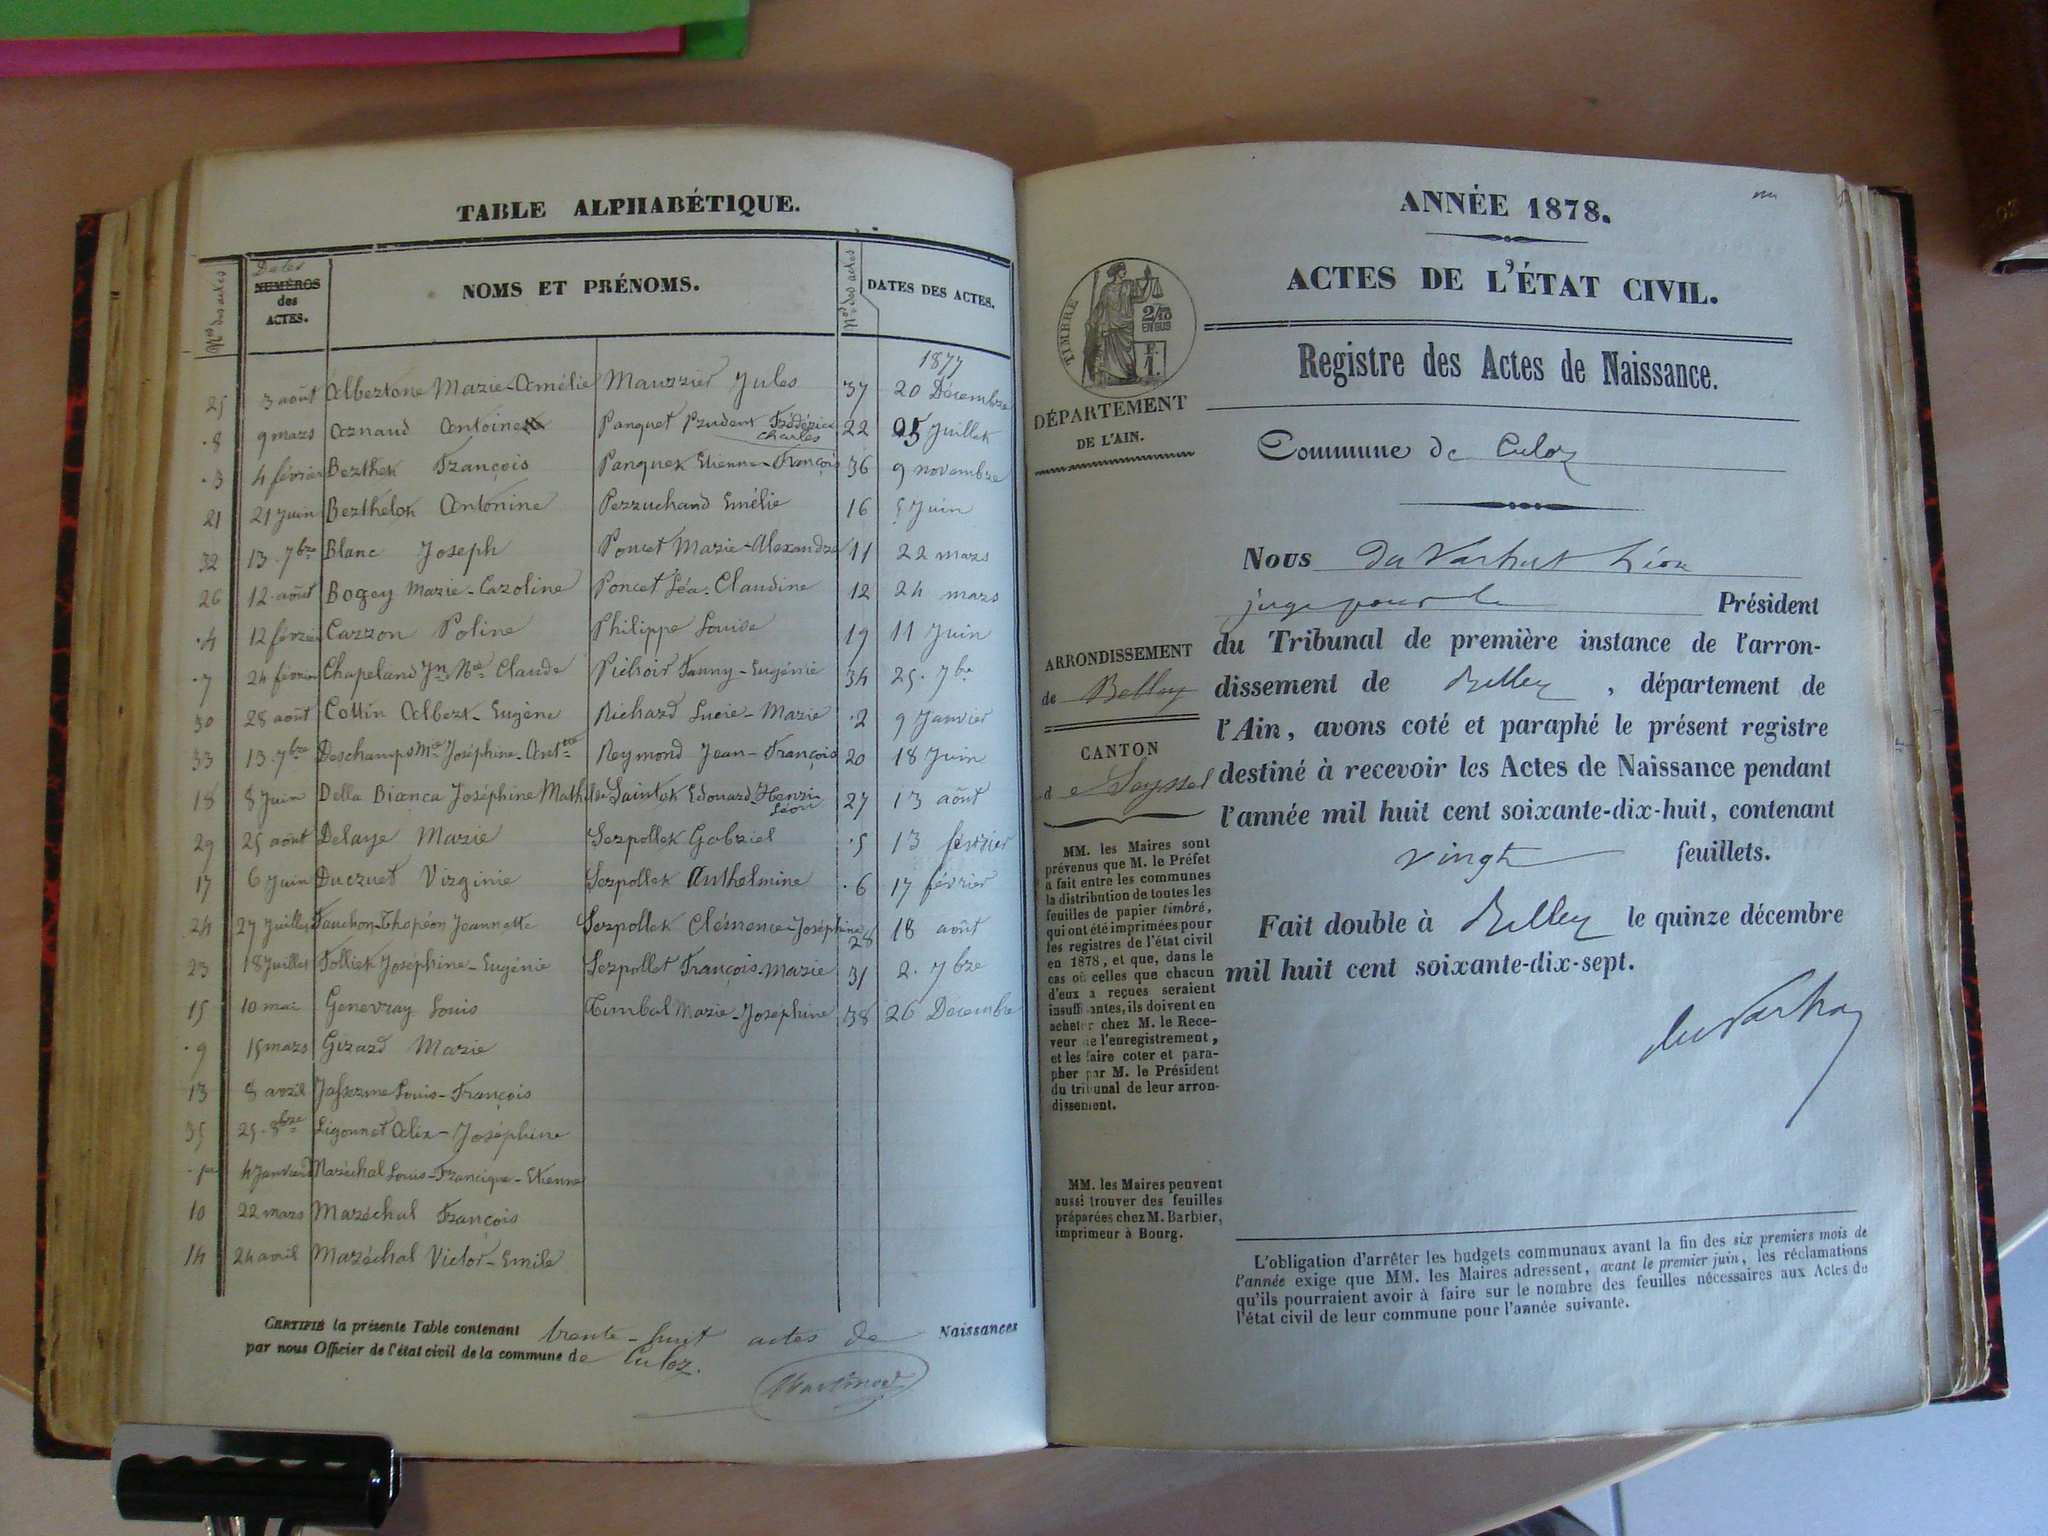 TABLE ALPHABÉTIQUE.
Nos des actes
Dates
NUMÉROS
des
ACTES.
NOMS ET PRÉNOMS.
Nos des actes
DATES DES ACTES.
1877
25 3 août Albertone Marie-Amélie Mauzzier Jules 37 20 Décembre
8 9 mars Arnaud Antoine Panquet Prudent Frédéric Charles 22 25 Juillet
3 4 février Berthet François Panquet Etienne-François 36 9 novembre
21 21 Juin Berthelot Antonine Perruchand Emélie 16 5 Juin
32 13. 7bre Blanc Joseph Poncet Marie-Alexandre 11 22 mars
26 12 août Bogey Marie-Caroline Poncet Léa-Claudine 12 24 mars
4 12 février Carron Poline Philippe Louise 19 11 Juin
7 24 février Chapeland Jn Bte Claude Pichoir Fanny-Eugénie 34 25. 7bre
30 28 août Cottin Albert-Eugène Richard Lucie-Marie 2 9 Janvier
33 13. 7bre Deschamps Mie Joséphine-Antte Reymond Jean-François 20 18 Juin
18 8 Juin Della Bianca Joséphine Mathilde Saintot Edouard-Henri Léon 27 13 août
29 25 août Delaye Marie Serpollet Gabriel 5 13 février
17 6 Juin Ducruet Virginie Serpollet Anthelmine 6 17 février
24 27 Juillet Fauchon-Thopéon Jeannette Serpollet Clémence-Joséphine 28 18 août
23 18 Juillet Folliet Joséphine-Eugénie Serpollet François-Marie 31 2. 7bre
15 10 mai Genevray Louis Timbal Marie-Joséphine 38 26 Décembre
9 15 mars Girard Marie
13 8 avril Jasserme Louis-François
35 25. 8bre Ligonnet Alix-Joséphine
1er 4 Janvier Maréchal Louis-Francique-Etienne
10 22 mars Maréchal François
14 24 avril Maréchal Victor-Emile
CERTIFIÉ la présente Table contenant trente-huit actes de Naissances
par nous Officier de l'état civil de la commune de Culoz.
ANNÉE 1878.
ACTES DE L'ÉTAT CIVIL.
TIMBRE
2/10
EN SUS
F.
1.
Registre des Actes de Naissance.
DÉPARTEMENT
DE L'AIN.
Commune de Culoz
Nous Léon
juge pour le Président
du Tribunal de première instance de l'arron-
dissement de Belley, département de
l'Ain, avons coté et paraphé le présent registre
destiné à recevoir les Actes de Naissance pendant
l'année mil huit cent soixante-dix-huit, contenant
vingt feuillets.
Fait double à Belley le quinze décembre
mil huit cent soixante-dix-sept.
ARRONDISSEMENT
de Belley
CANTON
de Seyssel
MM. les Maires sont
prévenus que M. le Préfet
a fait entre les communes
la distribution de toutes les
feuilles de papier timbré,
qui ont été imprimées pour
les registres de l'état civil
en 1878, et que, dans le
cas où celles que chacun
d'eux a reçues seraient
insuffisantes, ils doivent en
acheter chez M. le Rece-
veur de l'enregistrement,
et les faire coter et para-
pher par M. le Président
du tribunal de leur arron-
dissement.
MM. les Maires peuvent
aussi trouver des feuilles
préparées chez M. Barbier,
imprimeur à Bourg.
L'obligation d'arrêter les budgets communaux avant la fin des six premiers mois de
l'année exige que MM. les Maires adressent, avant le premier juin, les réclamations
qu'ils pourraient avoir à faire sur le nombre des feuilles nécessaires aux Actes de
l'état civil de leur commune pour l'année suivante.